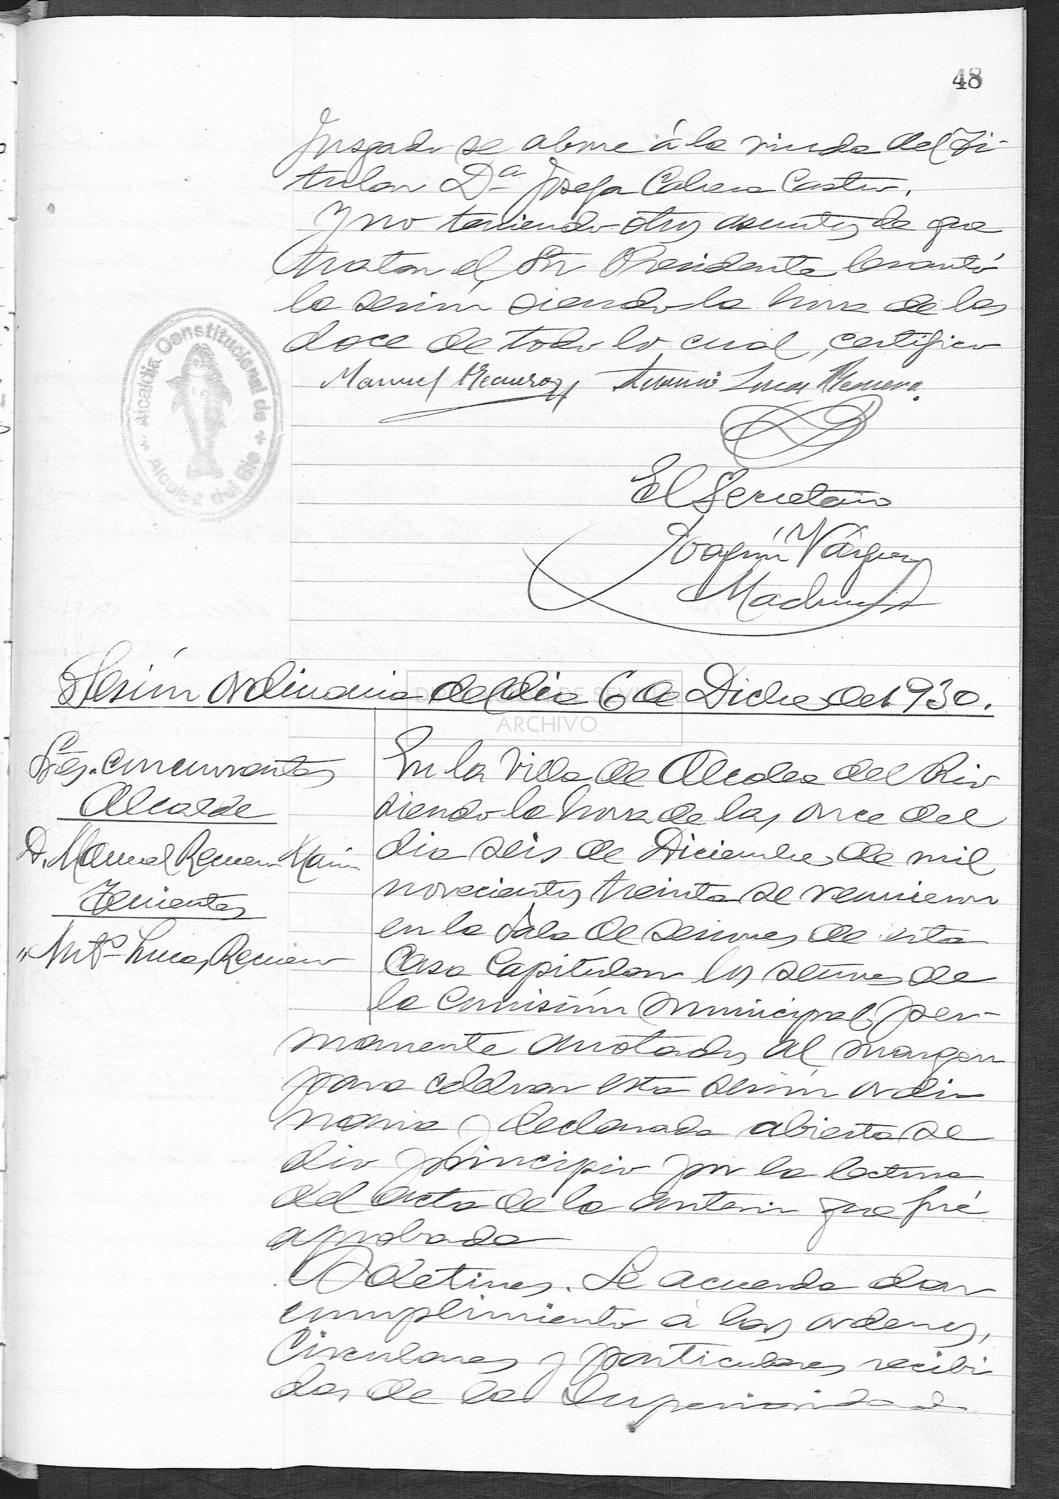 48
Juzgado se abone á la viuda del Ti-
tular Dª Josefa Cabera Castro.
Y no teniendo otros asuntos de que
tratar el Sr Presidente levantó
la sesión siendo la hora de las
doce de todo lo cual, certifico
Manuel Antonio Lucas Romero.
Alcaldia Constitucional de
Alcolea del Rio
El Secretario
Joaquín Vázquez
Sesión ordinaria del dia 6 de Dicbre de 1930.
ARCHIVO
Sres. concurrentes
Alcalde
D. Manuel
Tenientes
" Antº Lucas Romero
En la Villa de Alcolea del Rio
siendo la hora de las once del
dia seis de Diciembre de mil
novecientos treinta se reunieron
en la Sala de sesiones de esta
Casa Capitular los señores de
la Comisión municipal per-
manente anotados al margen
para celebrar esta sesión ordi
naria y declarada abierta se
dio principio por la lectura
del acta de la anterior que fué
aprobada
Boletines. Se acuerda dar
cumplimiento á las ordenes,
Circulares y particulares recibi
das de la Superioridad